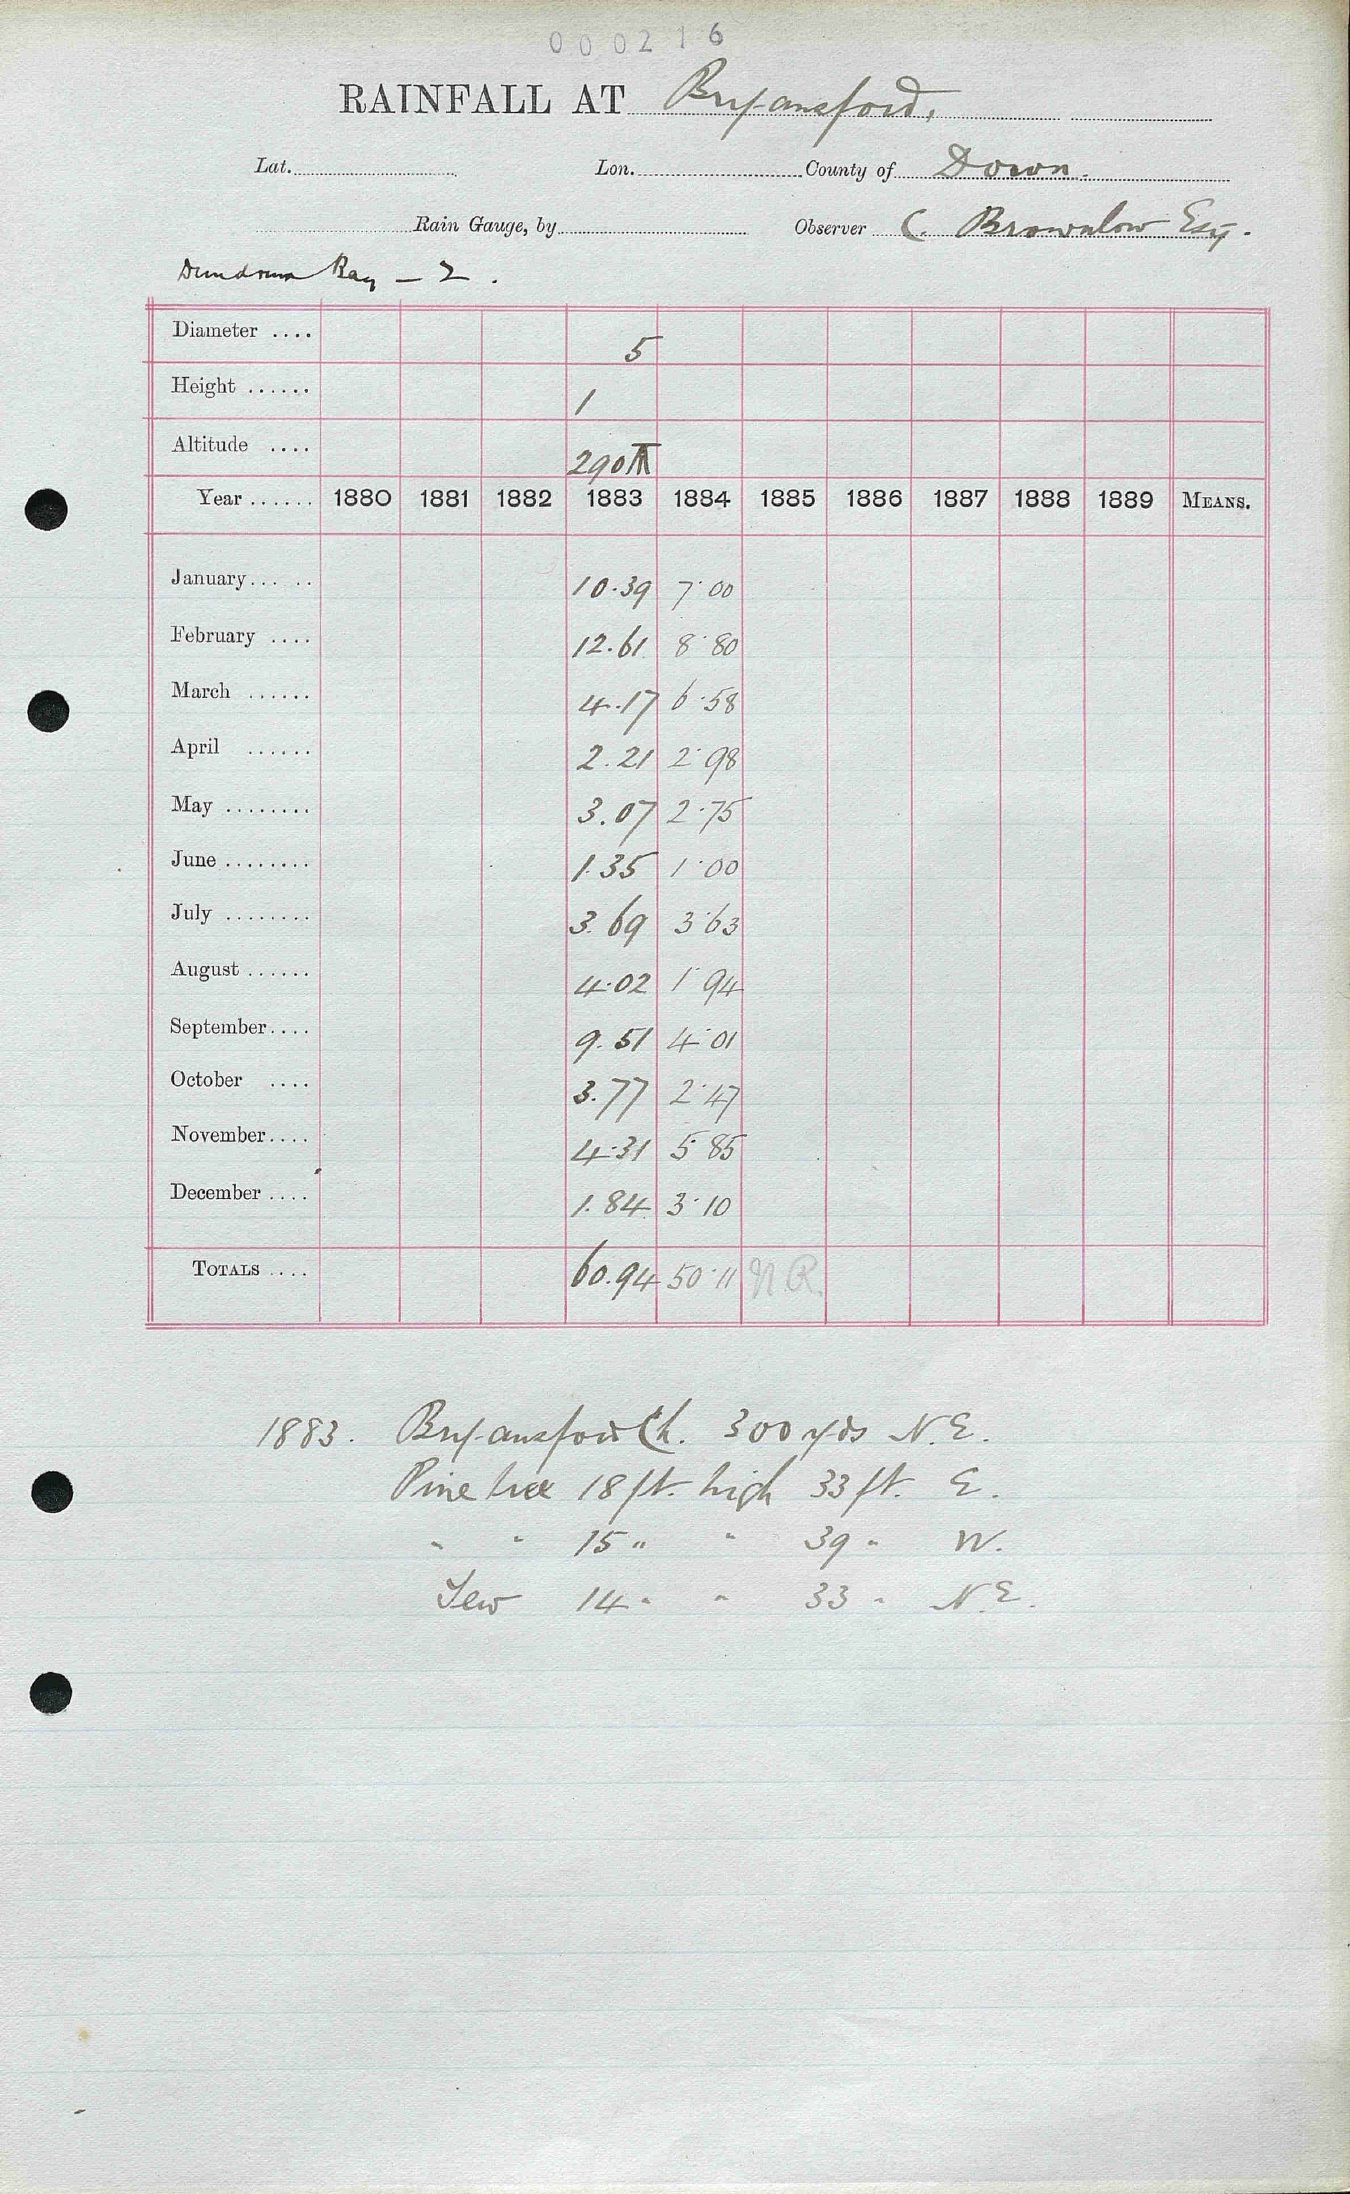 000216
RAINFALL AT Bryansford,
Lat. Lon. County of Down.
Rain Gauge, by Observer C. Brownlow Esq.
Dundrum Bay – 2.
Diameter .... 5
Height ...... 1
Altitude .... 290 ft
Year ...... 1880 1881 1882 1883 1884 1885 1886 1887 1888 1889 MEANS.
January... .. 10.39 7.00
February .... 12.61 8.80
March ...... 4.17 6.58
April ...... 2.21 2.98
May ........ 3.07 2.75
June ........ 1.35 1.00
July ........ 3.69 3.63
August ...... 4.02 1.94
September.... 9.51 4.01
October .... 3.77 2.47
November.... 4.31 5.85
December .... 1.84 3.10
TOTALS .... 60.94 50.11 N.R.
1883. Bryansford Ch. 300 yds N.E.
Pine tree 18 ft. high 33 ft. E.
" " 15 " " 39 " W.
Yew 14 " " 33 " N.E.